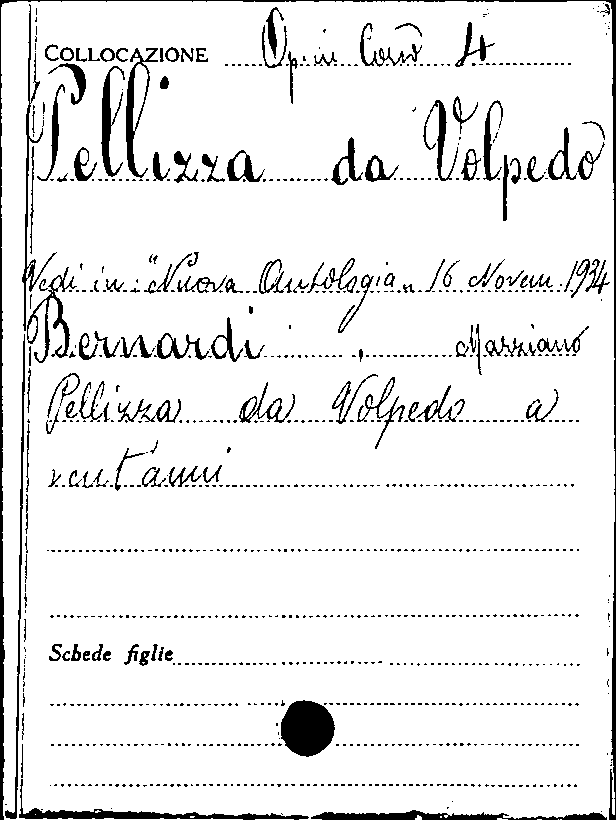 COLLOCAZIONE Op. in Corso 4
Pellizza da Volpedo
Vedi in: "Nuova Antologia" 16 Novem 1934
Bernardi, Marziano
Pellizza da Volpedo a
vent'anni
Schede figlie